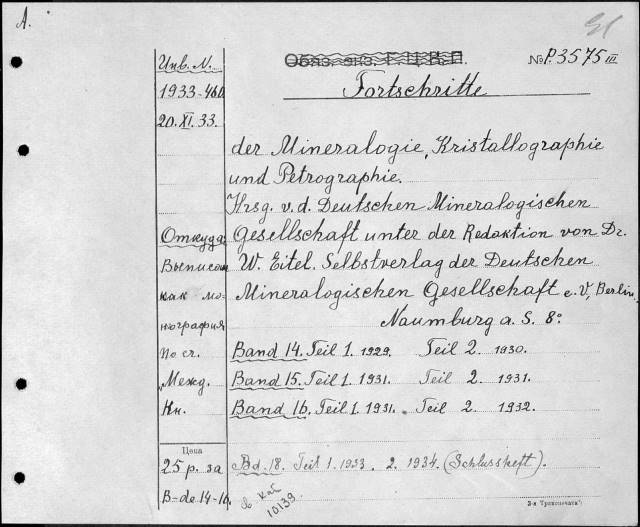 A.
Инв. N.
Обяз. экз. Г.Ц.К.П.
№ P.3575 III
1933-460
Fortschritte
20.XI.33.
der Mineralogie, Kristallographie
und Petrographie.
Hrsg. v. d. Deutschen Mineralogischen
Откуда: Gesellschaft unter der Redaktion von Dr.
Выписан W. Eitel. Selbstverlag der Deutschen
как мо- Mineralogischen Gesellschaft e. V., Berlin,
нография Naumburg a. S. 8°
По сч. Band 14. Teil 1. 1929. Teil 2. 1930.
„Межд. Band 15. Teil 1. 1931. Teil 2. 1931.
Кн. Band 16. Teil 1. 1931. Teil 2. 1932.
Цена
25 р. за Bd. 18. Teil 1. 1933. 2. 1934. (Schlussheft).
B-de 14-16.
в каб
10139
3-я Транспечать